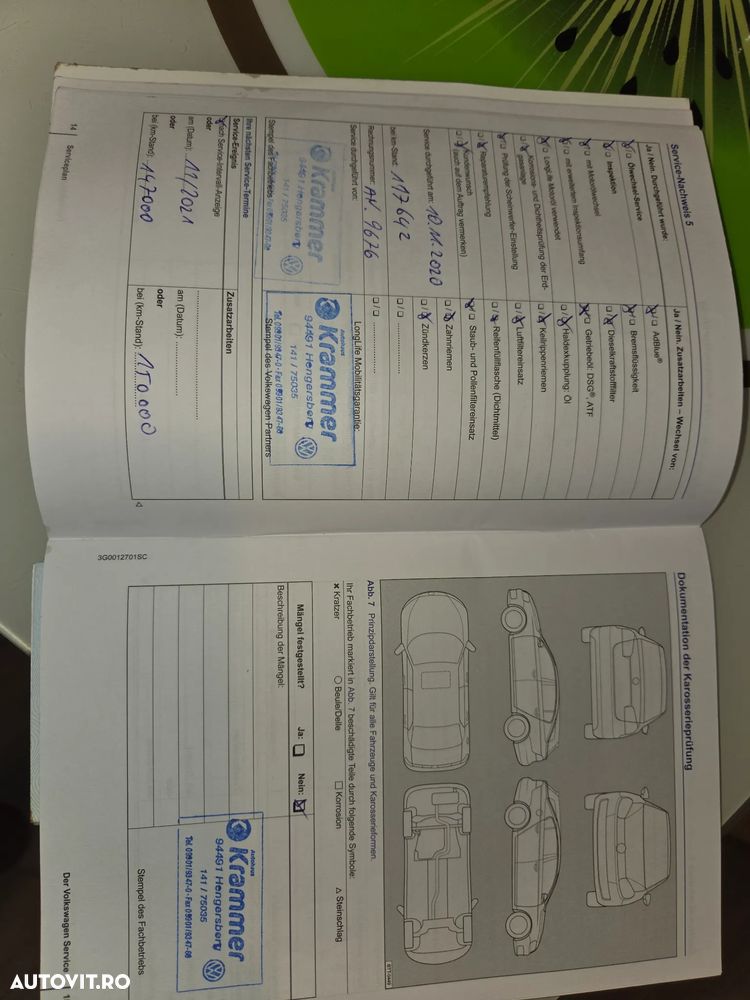 Service-Nachweis 5
Ja / Nein. Durchgeführt wurde:
Ölwechsel-Service
Inspektion
mit Motorölwechsel
mit erweitertem Inspektionsumfang
LongLife Motoröl verwendet
Korrosions- und Dichtheitsprüfung der Erdgasanlage
Prüfung der Scheinwerfer-Einstellung
Reparaturempfehlung
Kundenwunsch
(auch auf dem Auftrag vermerken)
Service durchgeführt am: 10.11.2020
bei km-Stand: 117642
Rechnungsnummer: AN. 9676
Service durchgeführt von:
Krammer
94491 Hengersberg
141 / 75035
Stempel des Fachbetriebs
Ihre nächsten Service-Termine
Service-Ereignis
nach Service-Intervall-Anzeige
oder
am (Datum): 11/2021
oder
bei (km-Stand): 147000
14 | Serviceplan
Ja / Nein. Zusatzarbeiten – Wechsel von:
AdBlue®
Bremsflüssigkeit
Dieselkraftstofffilter
Getriebeöl: DSG®, ATF
Haldexkupplung: Öl
Keilrippenriemen
Luftfiltereinsatz
Reifenfüllflasche (Dichtmittel)
Staub- und Pollenfiltereinsatz
Zahnriemen
Zündkerzen
LongLife Mobilitätsgarantie:
Autohaus
Krammer
94491 Hengersberg
141 / 75035
Tel. 09901/9347-0 · Fax 09901/9347-66
Stempel des Volkswagen Partners
Zusatzarbeiten
am (Datum):
oder
bei (km-Stand): 150000
3G0012701SC
Dokumentation der Karosserieprüfung
Abb. 7 Prinzipdarstellung. Gilt für alle Fahrzeuge und Karosserieformen.
Ihr Fachbetrieb markiert in Abb. 7 beschädigte Teile durch folgende Symbole:
× Kratzer ○ Beule/Delle □ Korrosion △ Steinschlag
Mängel festgestellt? Ja: Nein:
Beschreibung der Mängel:
Autohaus
Krammer
94491 Hengersberg
141 / 75035
Tel. 09901/9347-0 · Fax 09901/9347-66
Stempel des Fachbetriebs
Der Volkswagen Service
AUTOVIT.RO